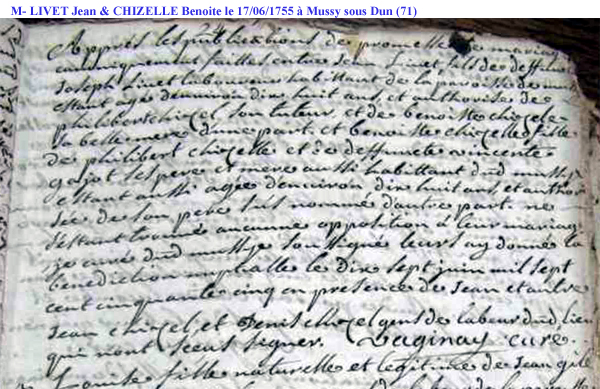 M- LIVET Jean & CHIZELLE Benoite le 17/06/1755 à Mussy sous Dun (71)
Apprés les publications de promettes de mariage
canoniquement faittes entre Jean Livet fils de deffunt
Joseph Livet laboureur habittant de la paroisse de
estant agé denuiron dix huit ans, et authorisé de
philibert chizel son tuteur, et de benoitte chizele
sa belle mere d'une part. et benoitte chizelle fille
de philibert chizelle et de deffuncte vincente
gajot ses pere et mere aussi habittant dud mussy
estant aussi agée denuiron dix huit ans, et authori
sée de son pere sus nommé d'autre part. ne
s'estant trouvé aucunne opposition a leur mariage
je curé dud mussy soussigné leurs ay donné la
benediction nuptialle le dix sept juin mil sept
cent cinquante cinq en presence de Jean et autre
Jean chizel, et Denis chizel gens de labeur dud lieu
qui n'ont sceus signer. Vaginay curé.
Louise fille naturelle et legitime de Jean